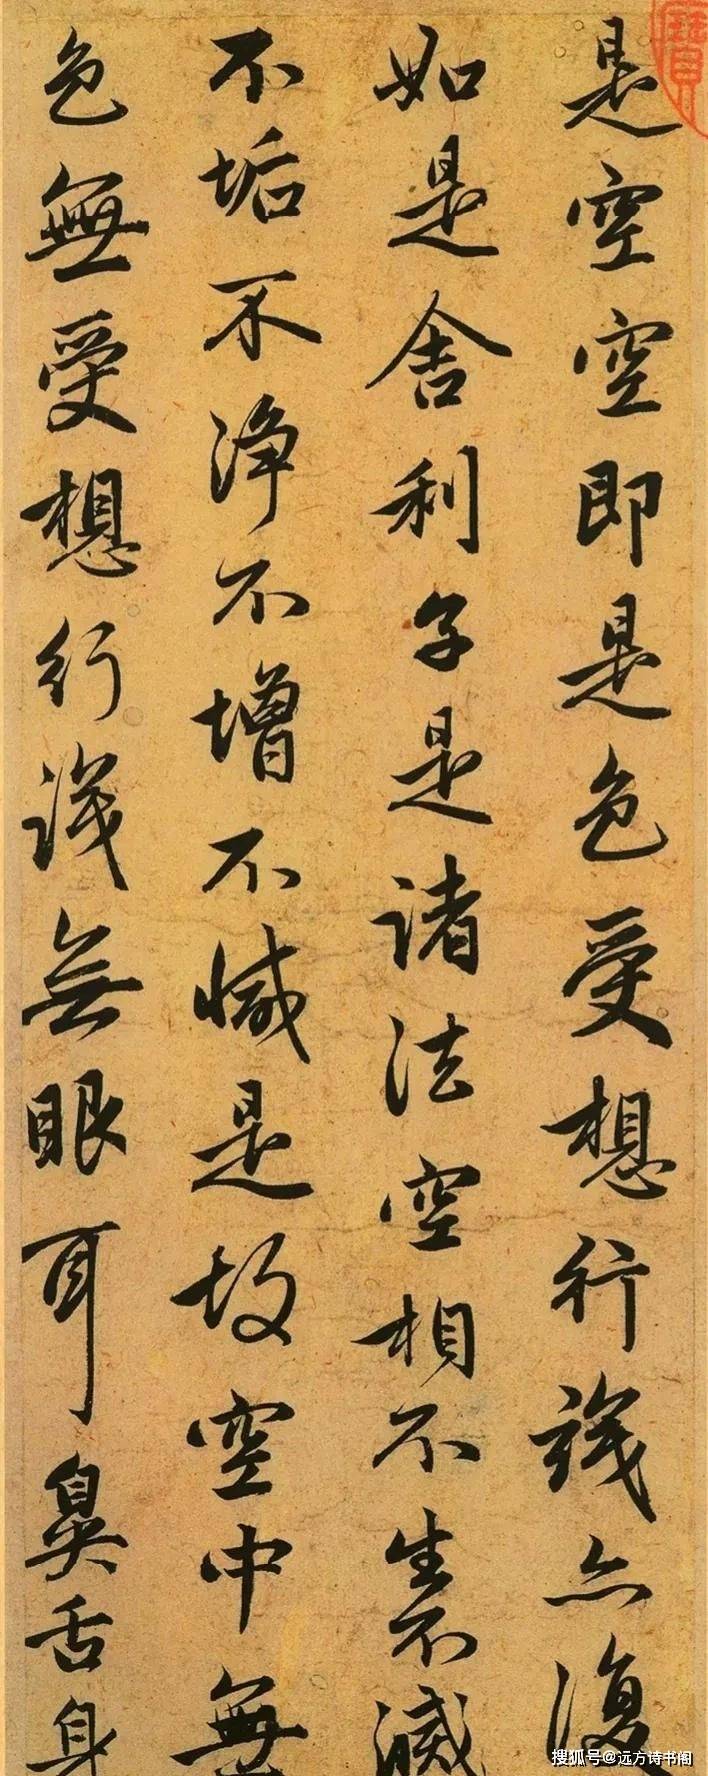 是空空即是色受想行識亦復
如是舍利子是諸法空相不生不滅
不垢不净不增不減是故空中無
色無受想行識無眼耳鼻舌身
寶
搜狐号@远方诗书阁